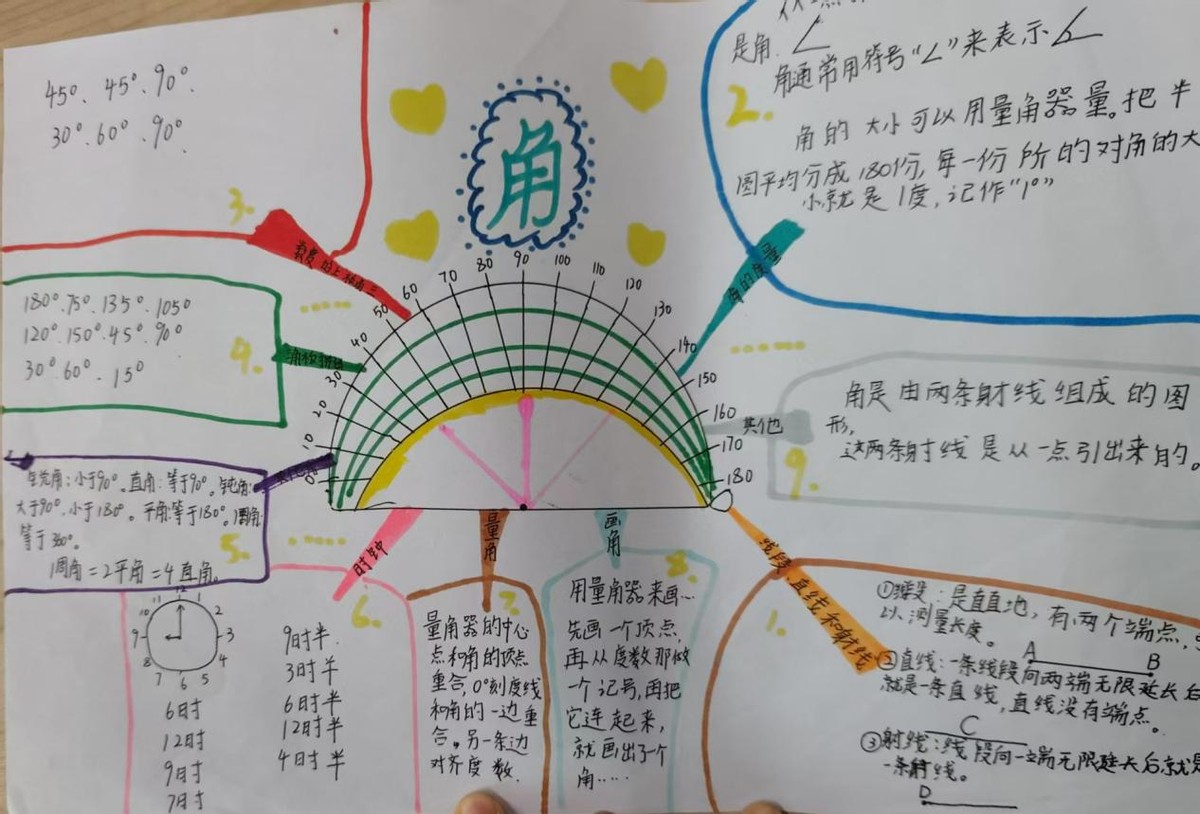 角
45°、45°、90°、
30°、60°、90°、
3.
180°.75°.135°.105°
120°.150°.45°.90°
30°.60°.15°
4.
锐角:小于90°。直角:等于90°。钝角:
大于90°,小于180°。平角:等于180°。周角:
等于360°。
1周角=2平角=4直角。
5.
是角.
角通常用符号"∠"来表示
2.
角的大小可以用量角器量。把半
圆平均分成180份,每一份所的对角的大
小就是1度,记作"1°"
0 10 20 30 40 50 60 70 80 90 100 110 120 130 140 150 160 170 180
其他
角是由两条射线组成的图
形,
这两条射线是从一点引出来的。
9.
时钟
6.
12
10
2
9
3
8
4
7
6
5
6时
12时
9时
7时
9时半
3时半
6时半
12时半
4时半
量角
7.
量角器的中心
点和角的顶点
重合,0°刻度线
和角的一边重
合。另一条边
对齐度数.
画角
8.
用量角器来画…
先画一个顶点,
再从度数那做
一个记号,再把
它连起来,
就画出了个
角……
线段、直线和射线
1.
①线段:是直直地,有两个端点,
以测量长度。
A B
②直线:一条线段向两端无限延长后
就是一条直线,直线没有端点。
C
③射线:线段向一端无限延长后,就是
一条射线。
D